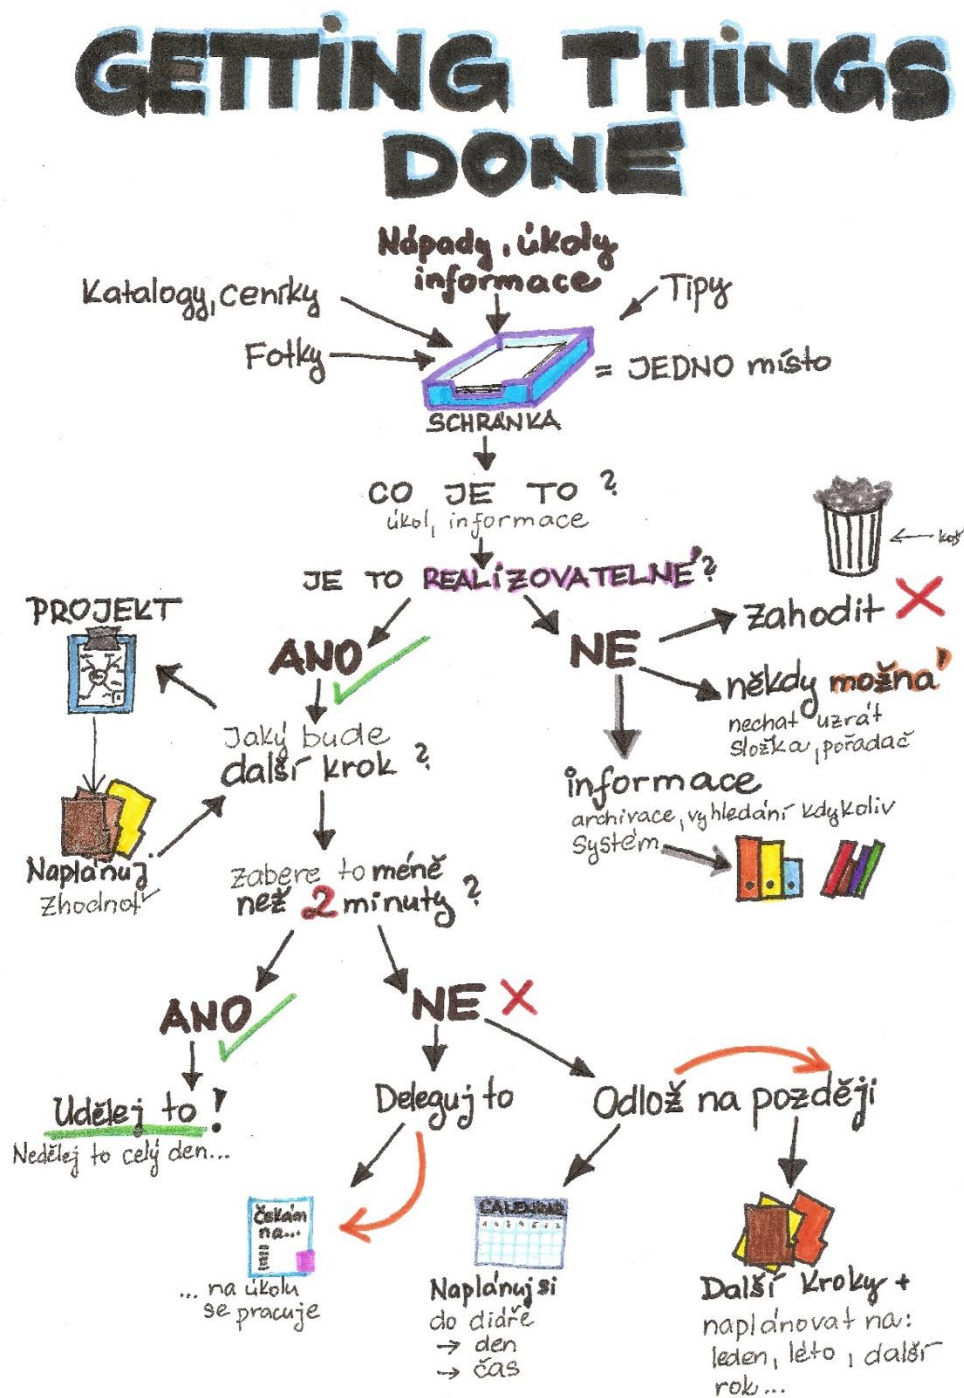 GETTING THINGS
DONE
Nápady, úkoly
informace
Katalogy, ceníky
Tipy
Fotky
= JEDNO místo
SCHRÁNKA
CO JE TO ?
úkol, informace
JE TO REALIZOVATELNÉ ?
koš
PROJEKT
zahodit
ANO
NE
někdy možná
nechat uzrát
složka, pořadač
Jaký bude
další krok ?
informace
archivace, vyhledání kdykoliv
systém
Naplánuj
zhodnoť
zabere to méně
než 2 minuty ?
ANO
NE
Udělej to !
Nedělej to celý den...
Deleguj to
Odlož na později
Čekám
na...
CALENDAR
... na úkolu
se pracuje
Naplánuj si
do diáře
→ den
→ čas
Další kroky +
naplánovat na:
leden, léto, další
rok...